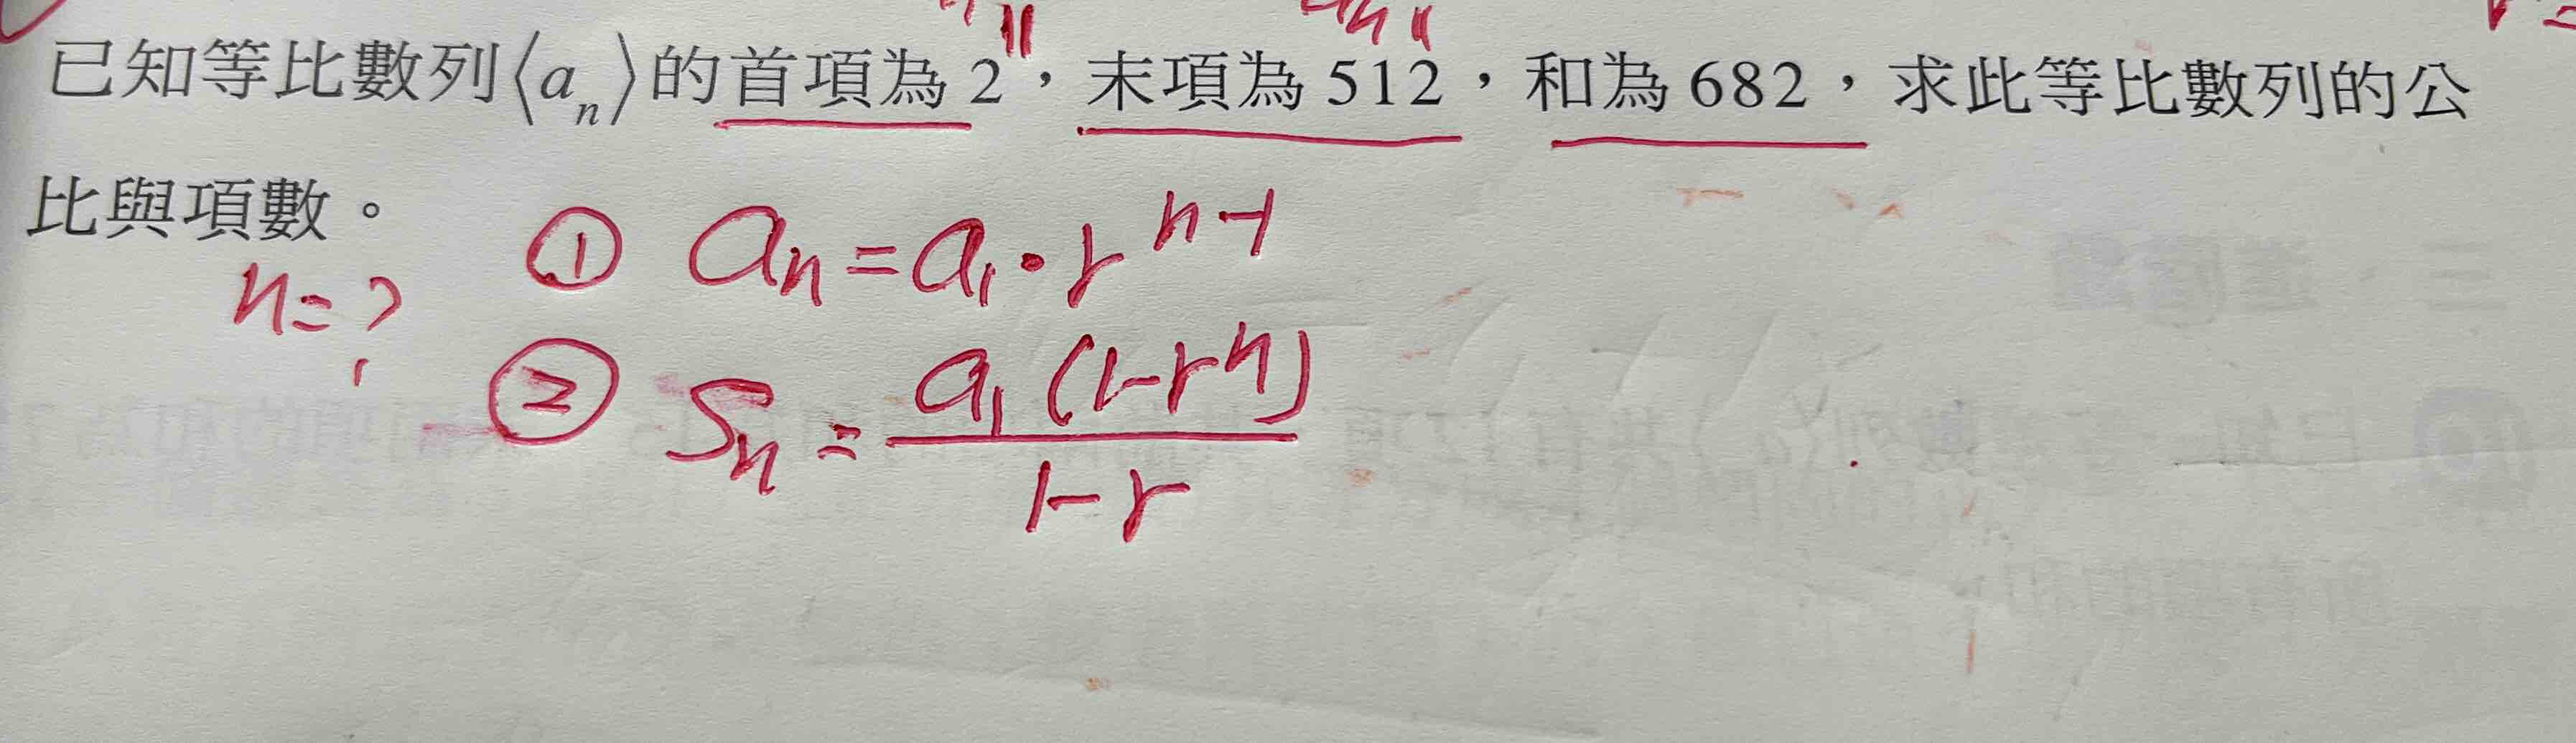 已知等比數列⟨aₙ⟩的首項為 2，末項為 512，和為 682，求此等比數列的公
比與項數。
n=?
① aₙ=a₁·rⁿ⁻¹
② Sₙ=a₁(1-rⁿ)/1-r